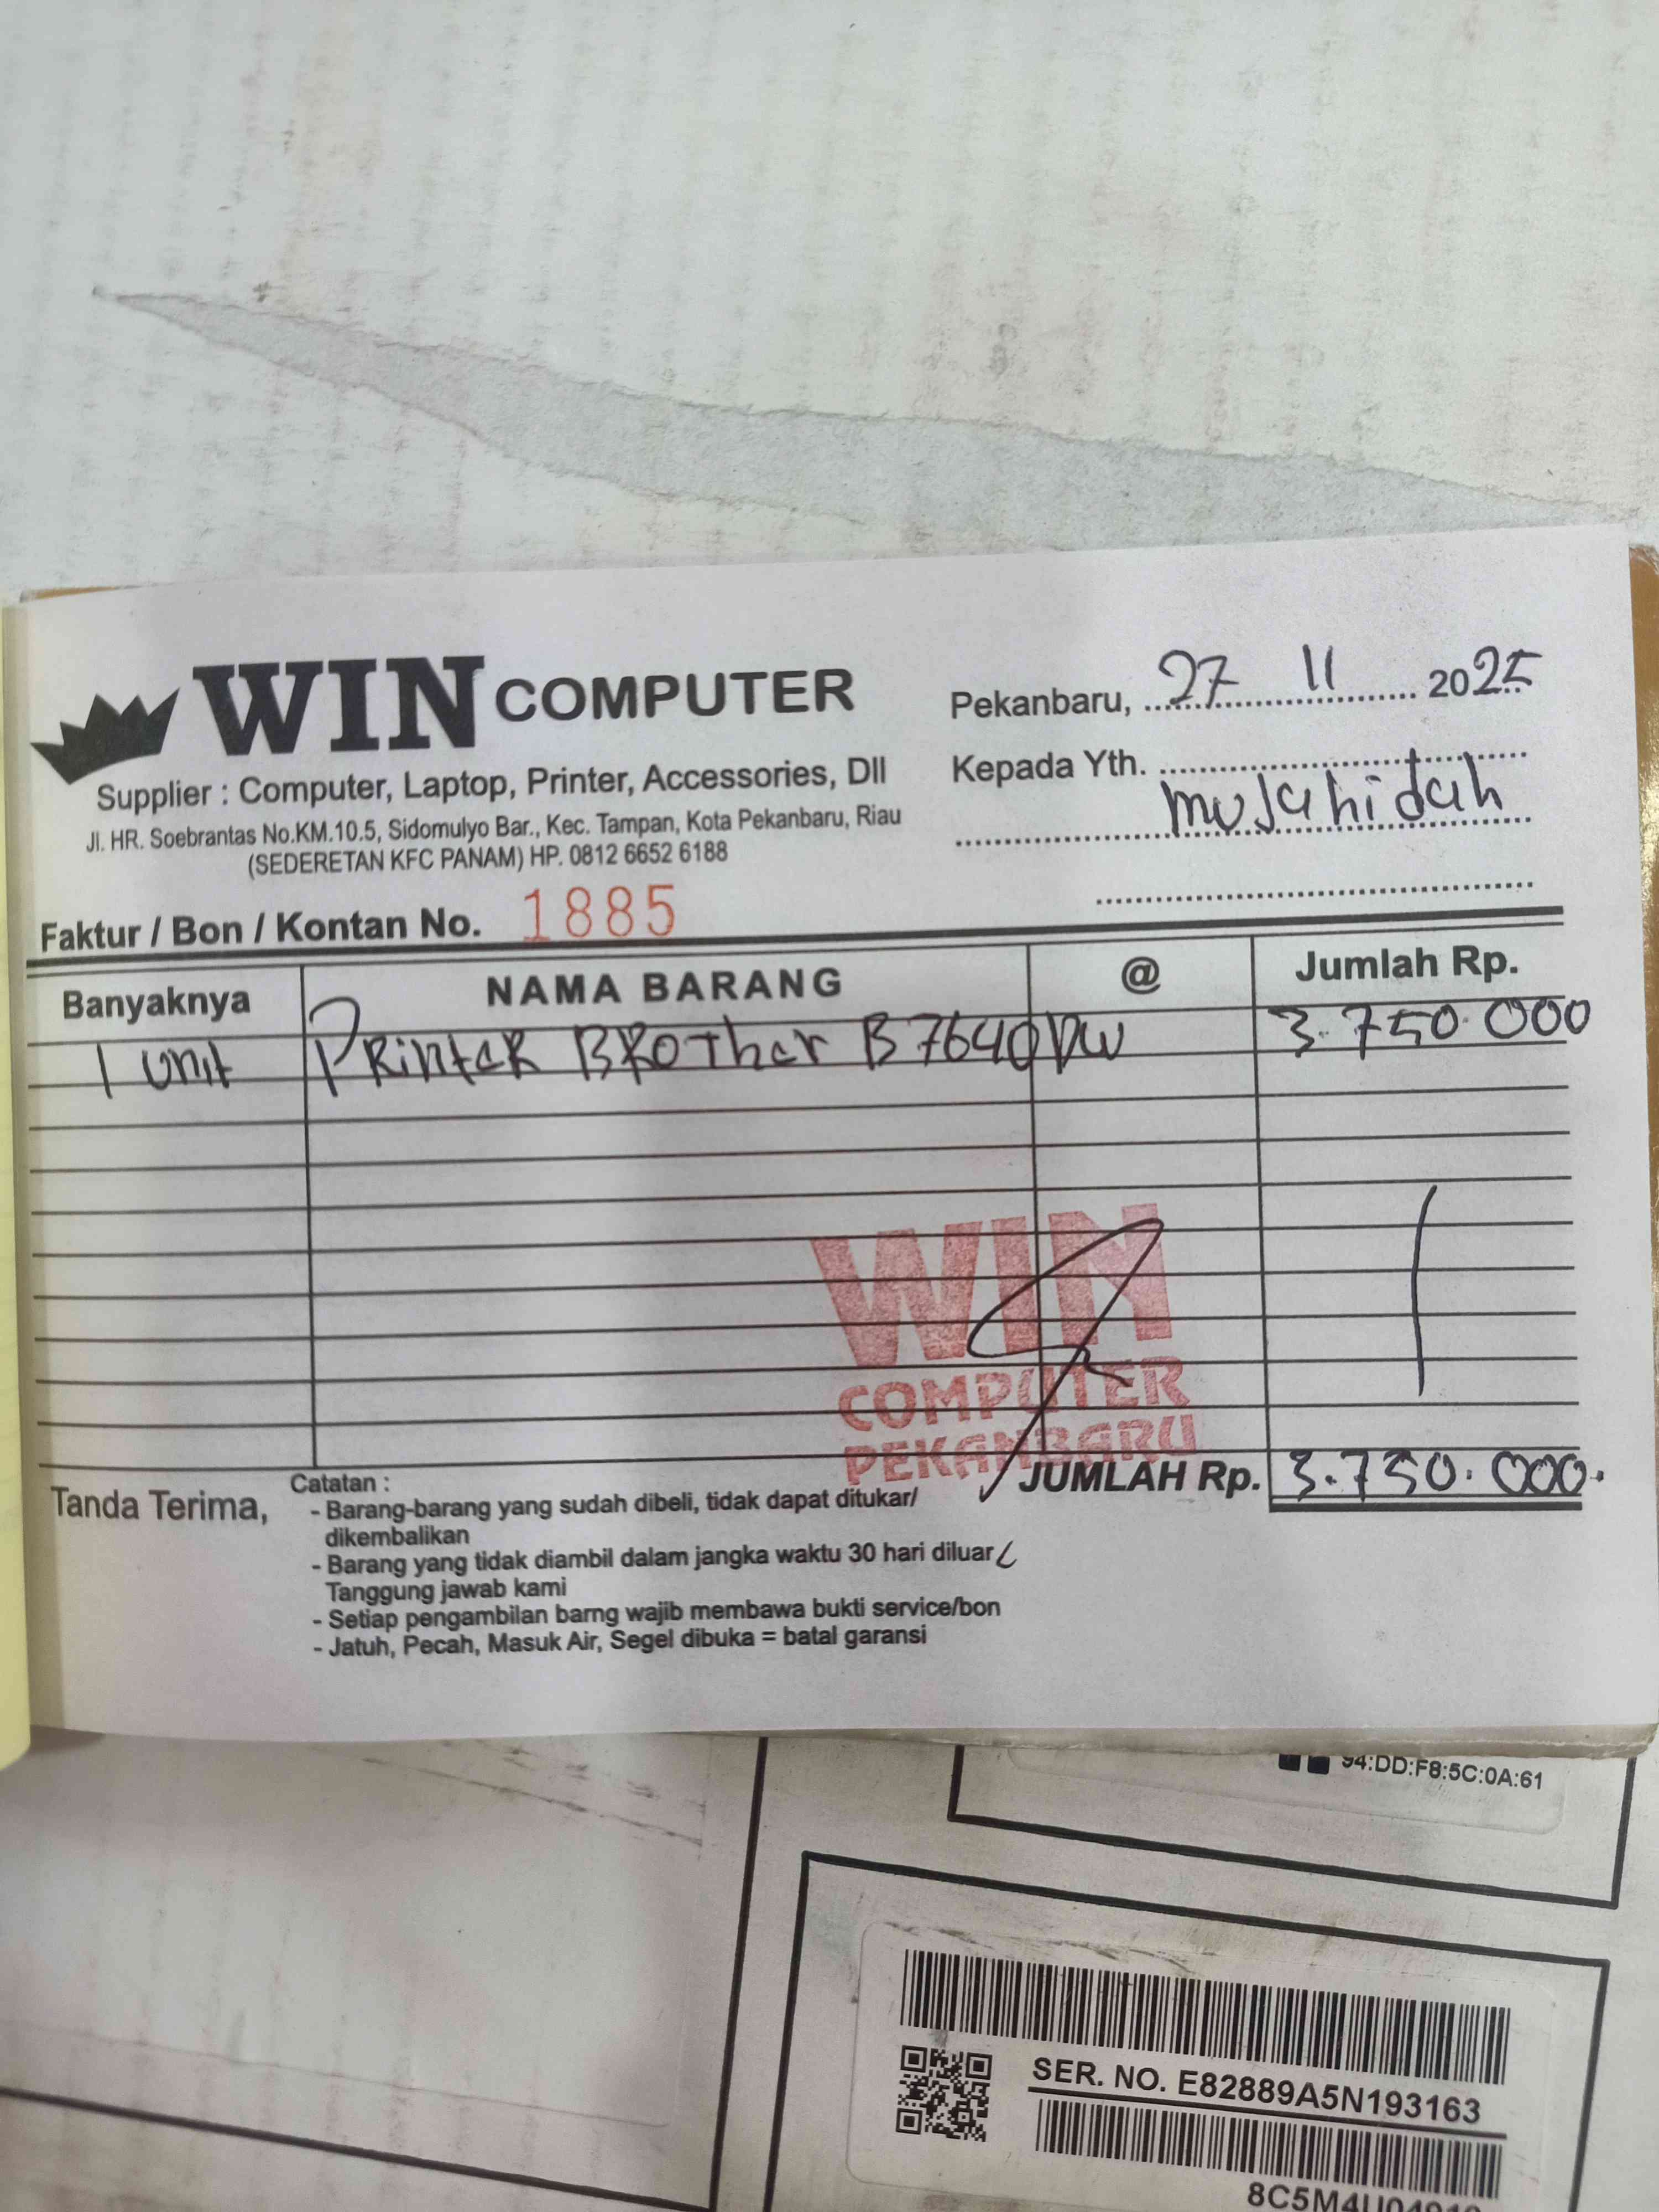 WIN COMPUTER
Supplier : Computer, Laptop, Printer, Accessories, Dll
Jl. HR. Soebrantas No.KM.10.5, Sidomulyo Bar., Kec. Tampan, Kota Pekanbaru, Riau
(SEDERETAN KFC PANAM) HP. 0812 6652 6188
Pekanbaru, 27 11 2025
Kepada Yth.
mujahidah
Faktur / Bon / Kontan No. 1885
Banyaknya NAMA BARANG @ Jumlah Rp.
1 unit Printer Brother B7640DW 3.750.000
WIN
COMPUTER
PEKANBARU
JUMLAH Rp. 3.750.000.
Tanda Terima,
Catatan :
- Barang-barang yang sudah dibeli, tidak dapat ditukar/
dikembalikan
- Barang yang tidak diambil dalam jangka waktu 30 hari diluar
Tanggung jawab kami
- Setiap pengambilan barng wajib membawa bukti service/bon
- Jatuh, Pecah, Masuk Air, Segel dibuka = batal garansi
94:DD:F8:5C:0A:61
SER. NO. E82889A5N193163